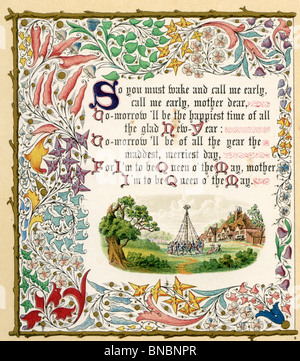 So you must wake and call me early,
call me early, mother dear,
To-morrow 'll be the happiest time of all
the glad New-Year:
To-morrow 'll be of all the year the
maddest, merriest day,
For I'm to be Queen o' the May, mother,
I'm to be Queen o' the May.
alamy
BNBNPR
www.alamy.com